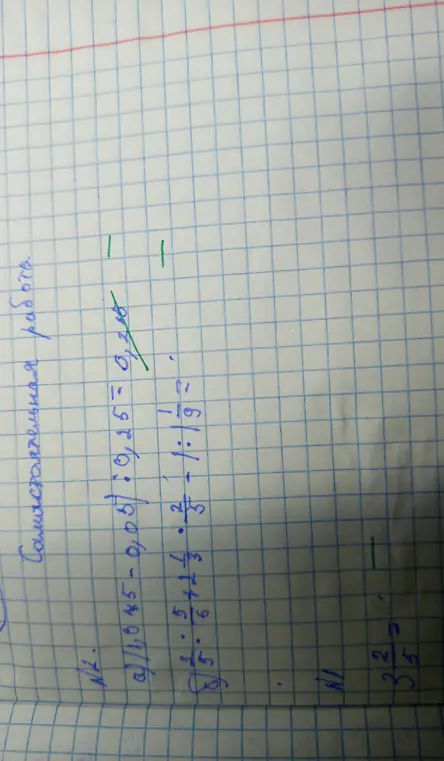 Самостоятельная работа
№2.
а) (1,045 - 0,05) : 0,25 = 0,210
б) 2/5 : 5/6 + 2 1/3 · 2/5 - 1 : 1 1/9 =
№1
3 2/5 =